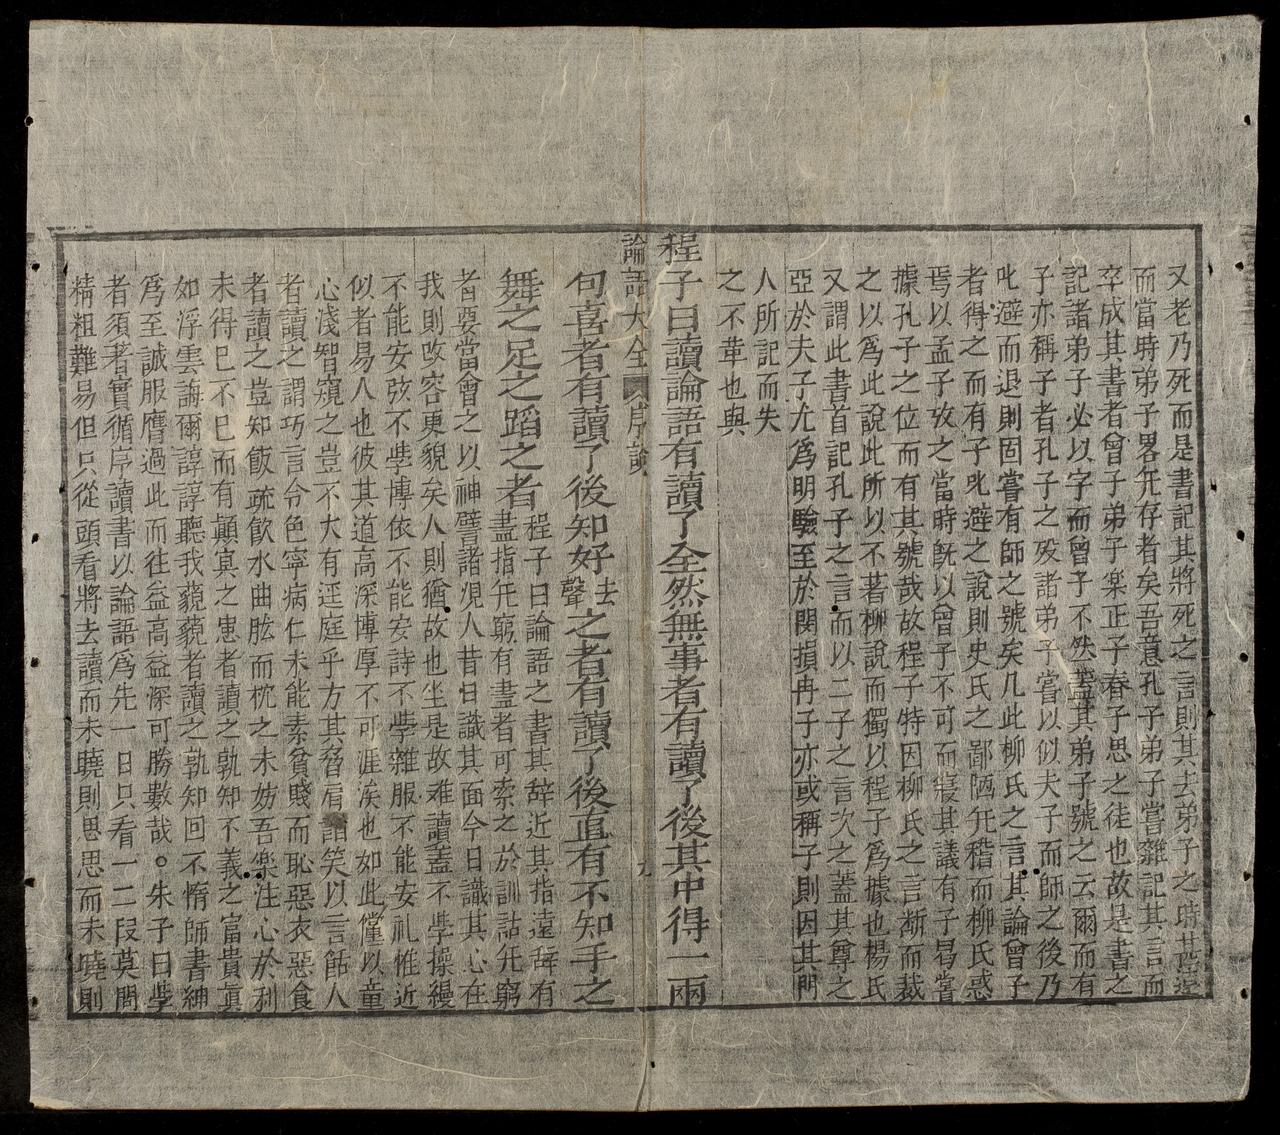 又老乃死而是書記其將死之言則其去弟子之時甚遠
而當時弟子畧无存者矣吾意孔子弟子嘗雜記其言而
卒成其書者曾子弟子楽正子春子思之徒也故是書之
記諸弟子必以字而曾子不然蓋其弟子號之云爾而有
子亦稱子者孔子之歿諸弟子嘗以似夫子而師之後乃
叱避而退則固嘗有師之號矣凡此柳氏之言其論曾子
者得之而有子叱避之說則史氏之鄙陋无稽而柳氏惑
焉以孟子攷之當時既以曾子不可而寢其議有子曷嘗
據孔子之位而有其號哉故程子特因柳氏之言斷而裁
之以爲此說此所以不著柳說而獨以程子爲據也楊氏
又謂此書首記孔子之言而以二子之言次之蓋其尊之
亞於夫子尤爲明驗至於閔損冉子亦或稱子則因其門
人所記而失
之不革也與
程子曰讀論語有讀了全然無事者有讀了後其中得一兩
論語大全 序說 九
句喜者有讀了後知好去聲之者有讀了後直有不知手之
舞之足之蹈之者程子曰論語之書其辞近其指遠辞有
盡指无窮有盡者可索之於訓詁无窮
者要當會之以神譬諸覌人昔日識其面今日識其心在
我則改容更貌矣人則猶故也坐是故难讀蓋不學操縵
不能安弦不學博依不能安詩不學雜服不能安礼惟近
似者易人也彼其道高深博厚不可涯涘也如此儻以童
心淺智窺之豈不大有逕庭乎方其脅肩謟笑以言餂人
者讀之謂巧言令色寧病仁未能素貧賤而恥惡衣惡食
者讀之豈知飯疏飲水曲肱而枕之未妨吾楽注心於利
未得已不已而有顛冥之患者讀之孰知不義之富貴眞
如浮雲誨爾諄諄聽我藐藐者讀之孰知回不惰師書紳
爲至誠服膺過此而往益高益深可勝數哉。朱子曰學
者須著實循序讀書以論語爲先一日只看一二段莫問
精粗難易但只從頭看將去讀而未曉則思思而未曉則